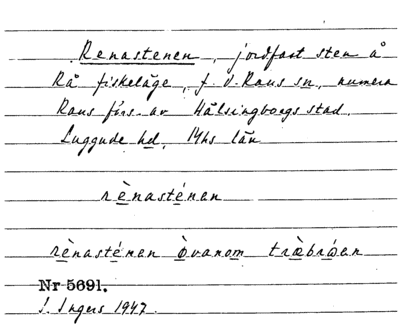 Renastenen, jordfast sten å
Rå fiskeläge, f. d. Raus sn, numera
Raus förs. av Hälsingborgs stad,
Luggude hd, Mhs län
rènasténen
rènasténen òvanom træbrǿen
Nr 5691.
I. Ingers 1947.